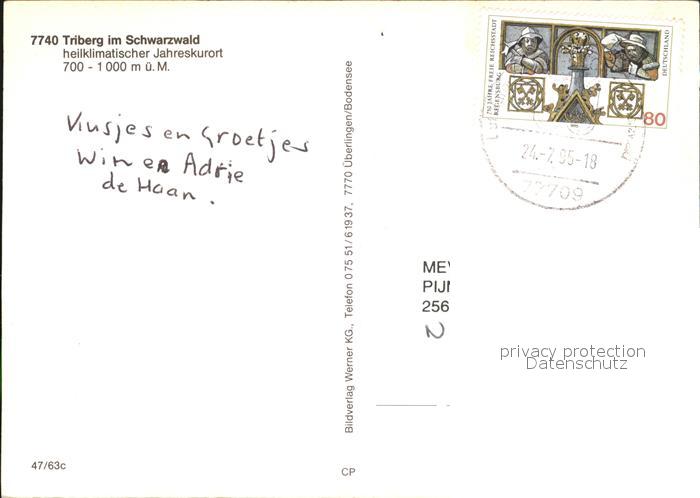 7740 Triberg im Schwarzwald
heilklimatischer Jahreskurort
700 - 1000 m ü. M.
Kusjes en Groetjes
Wim en Adrie
de Haan.
47/63c
Bildverlag Werner KG., Telefon 0 75 51/6 19 37, 7770 Überlingen/Bodensee
CP
750 JAHRE FREIE REICHSSTADT
REGENSBURG
DEUTSCHLAND
80
24.-7.95-18
77709
MEV
PIJN
256
N
privacy protection
Datenschutz